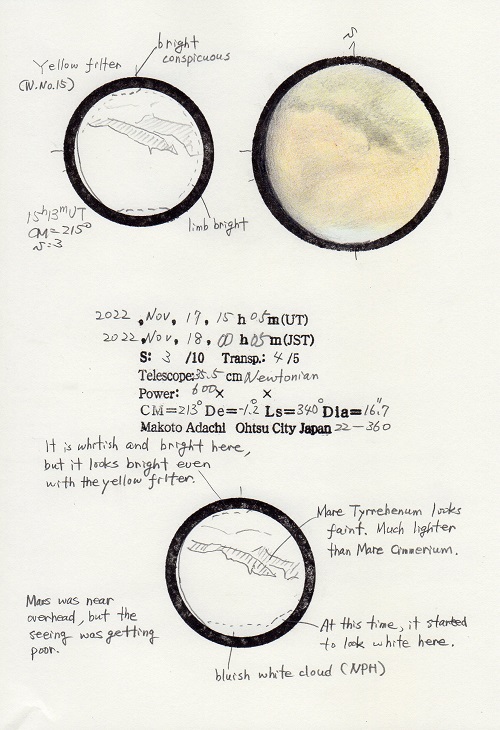 bright
conspicuous
Yellow filter
(W.No.15)
S
limb bright
15h13mUT
CM=215°
S:3
2022, Nov, 17, 15 h 05 m (UT)
2022, Nov, 18, 00 h 05 m (JST)
S: 3 /10 Transp.: 4 /5
Telescope: 35.5 cm Newtonian
Power: 600× ×
CM=213° De=-1.2° Ls=340° Dia=16".7
Makoto Adachi Ohtsu City Japan 22-360
It is whitish and bright here,
but it looks bright even
with the yellow filter.
Mare Tyrrehenum looks
faint. Much lighter
than Mare Cimmerium.
Mars was near
overhead, but the
seeing was getting
poor.
At this time, it started
to look white here.
bluish white cloud (NPH)